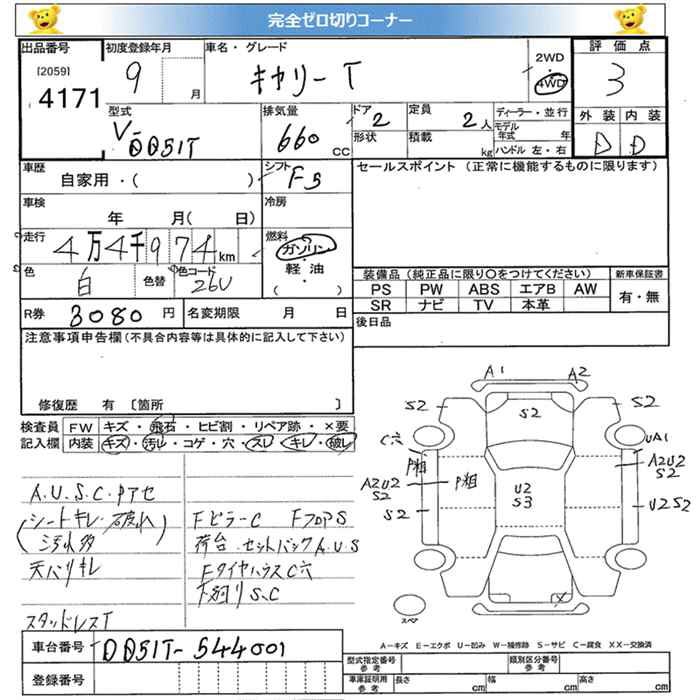 完全ゼロ切りコーナー
出品番号 初度登録年月 車名・グレード 評価点
[2059] 4171 9 月 キャリー T 2WD 4WD 3
外装 内装
D D
型式 排気量 ドア 定員 ディーラー・並行
V-DD51T 660 CC 2 2 人 モデル年式 年
形状 積載 kg ハンドル 左・右
車歴 シフト セールスポイント (正常に機能するものに限ります)
自家用・( ) F5
車検 冷房
年 月( 日)
走行 燃料
4万4千974 km ガソリン
軽油
( ・ )
色 色替 色コード
白 26U
装備品 (純正品に限り○をつけてください) 新車保証書
PS PW ABS エアB AW 有・無
SR ナビ TV 本革
R券 3080 円 名変期限 月 日
後日品
注意事項申告欄 (不具合内容等は具体的に記入して下さい)
修復歴 有 〔箇所 〕
検査員 FW キズ・飛石・ヒビ割・リペア跡・×要
記入欄 内装 キズ・汚れ・コゲ・穴・スレ・キレ・破レ
A.U.S.C.Pアセ
(シートキレ・破れ) Fピラ-C FフロアS
汚れ多 荷台.セットバックA.U.S
天バリキレ FタイヤハウスC穴
下廻りS.C
スタッドレスT
A1 A2
S2 S2 S2
C穴 UA1
P相 P相
A2U2 S2 A2U2 S2
U2 S3
S2 U2S2
スペア
A-キズ E-エクボ U-凹み W-補修跡 S-サビ C-腐食 XX-交換済
車台番号 DD51T-544001
登録番号
型式指定番号 参考 類別区分番号 参考
車庫証明用 参考 長さ cm 幅 cm 高さ cm